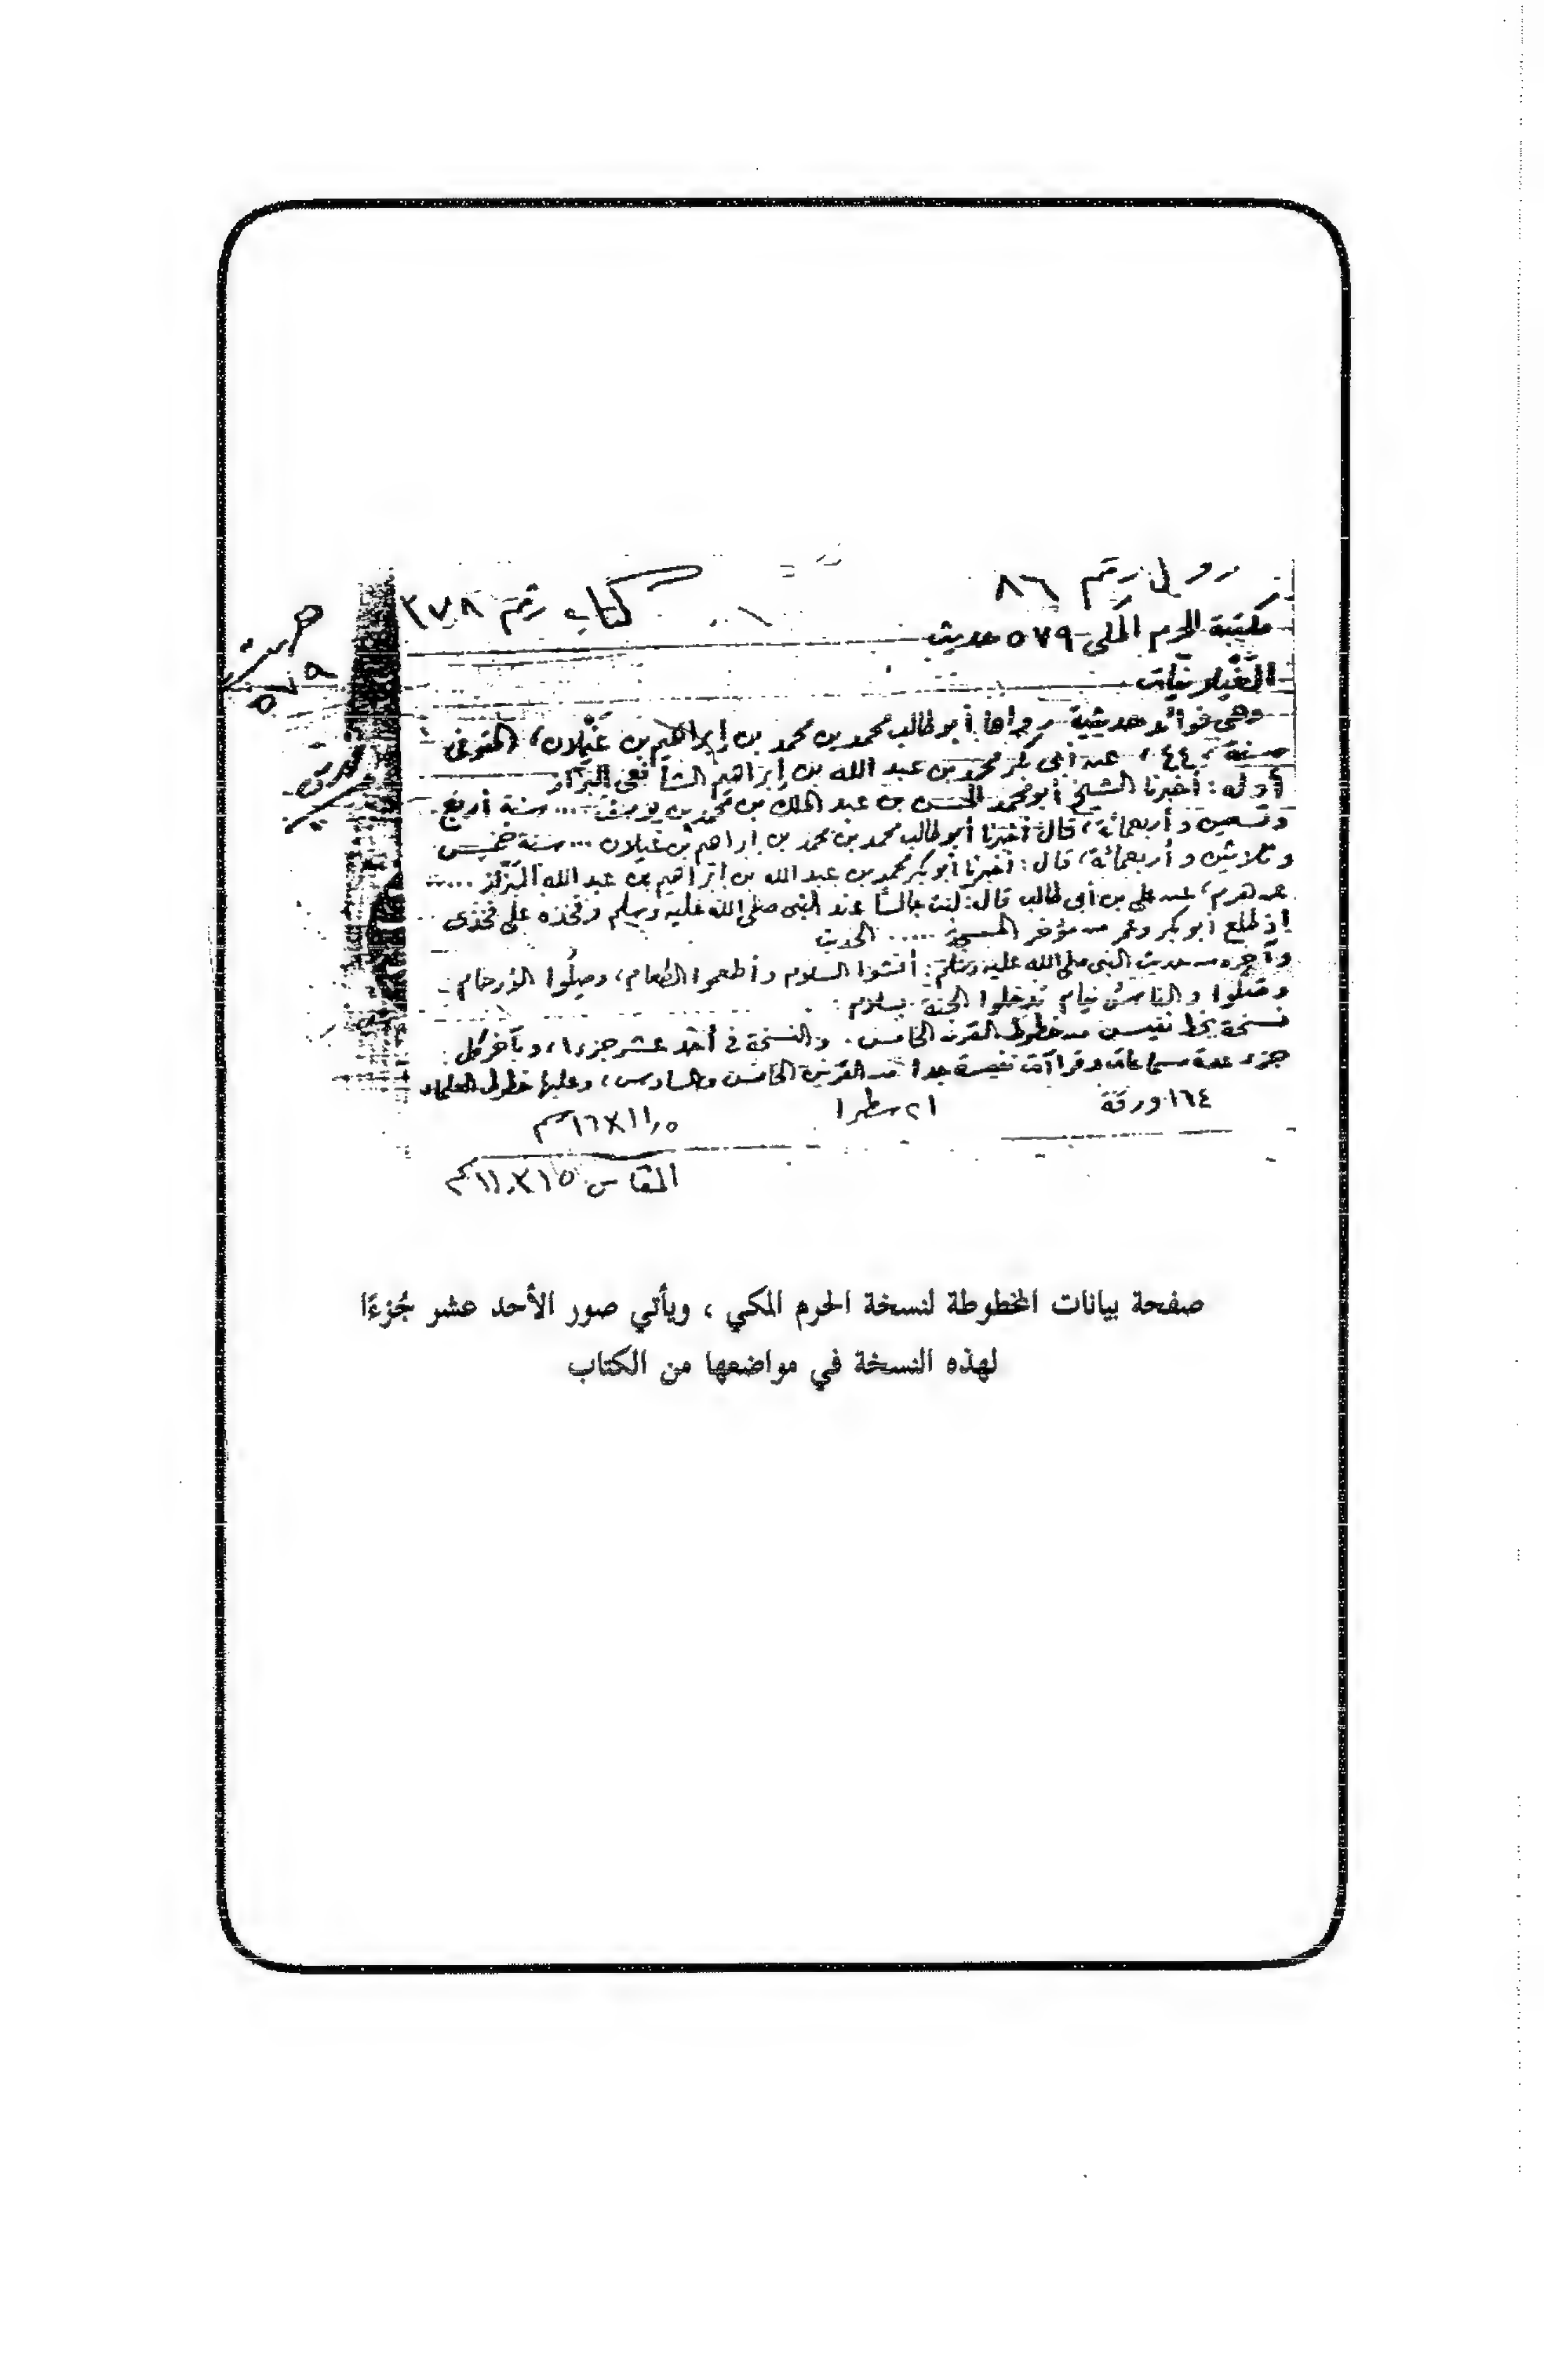 رول رقم ٨٦
كتاب رقم ٣٧٨
مكتبة الحرم المكي ٥٧٩ حديث
الغيلانيات
وهي فوائد حديثية رواها أبو طالب محمد بن محمد بن إبراهيم بن غَيْلان، المتوفى
سنة ٤٤٠، عن أبي بكر محمد بن عبد الله بن إبراهيم الشافعي البزاز
أوله: أخبرنا الشيخ أبو محمد الحسن بن عبد الملك بن محمد بن يوسف .... سنة أربع
وتسعين وأربعمائة، قال أخبرنا أبو طالب محمد بن محمد بن إبراهيم بن غيلان ... سنة خمس
وثلاثين وأربعمائة، قال: أخبرنا أبو بكر محمد بن عبد الله بن إبراهيم بن عبد الله البزاز .....
عن هرم، عن علي بن أبي طالب قال: كنت جالسًا عند النبي صلى الله عليه وسلم وفخذه على فخذي
إذ طلع أبو بكر وعمر من مؤخر المسجد ..... الحديث
وآخره من حديث النبي صلى الله عليه وسلم: أفشوا السلام وأطعموا الطعام، وصِلُوا الأرحام
وصلوا والناس نيام تدخلوا الجنة بسلام
نسخة بخط نفيس من خطوط القرن الخامس. والنسخة في أحد عشر جزءا، وبآخر كل
جزء عدة سماعات وقراآت نفيسة جدا من القرنين الخامس والسادس، وعليها خطوط العلماء
١٦٤ ورقة
٢١ سطرا
١١٫٥×١٦ سم
المقاس ١٥×١١ سم
صفحة بيانات المخطوطة لنسخة الحرم المكي ، ويأتي صور الأحد عشر جُزءًا
لهذه النسخة في مواضعها من الكتاب